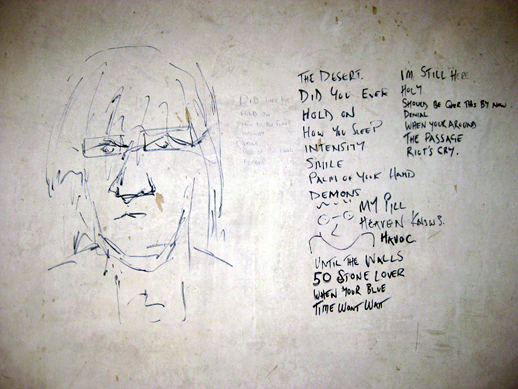 DID YOU EVER
HOLD ON
THE DESERT.
DID YOU EVER
HOLD ON
HOW YOU SLEEP
INTENSITY
SMILE
PALM OF YOUR HAND
DEMONS
MY PILL
HEAVEN KNOWS.
HAVOC
UNTIL THE WALLS
50 STONE LOVER
WHEN YOUR BLUE
TIME WONT WAIT
IM STILL HERE
HOLY
SHOULD BE OVER THIS BY NOW.
DENIAL
WHEN YOUR AROUND
THE PASSAGE
RIOT'S CRY.